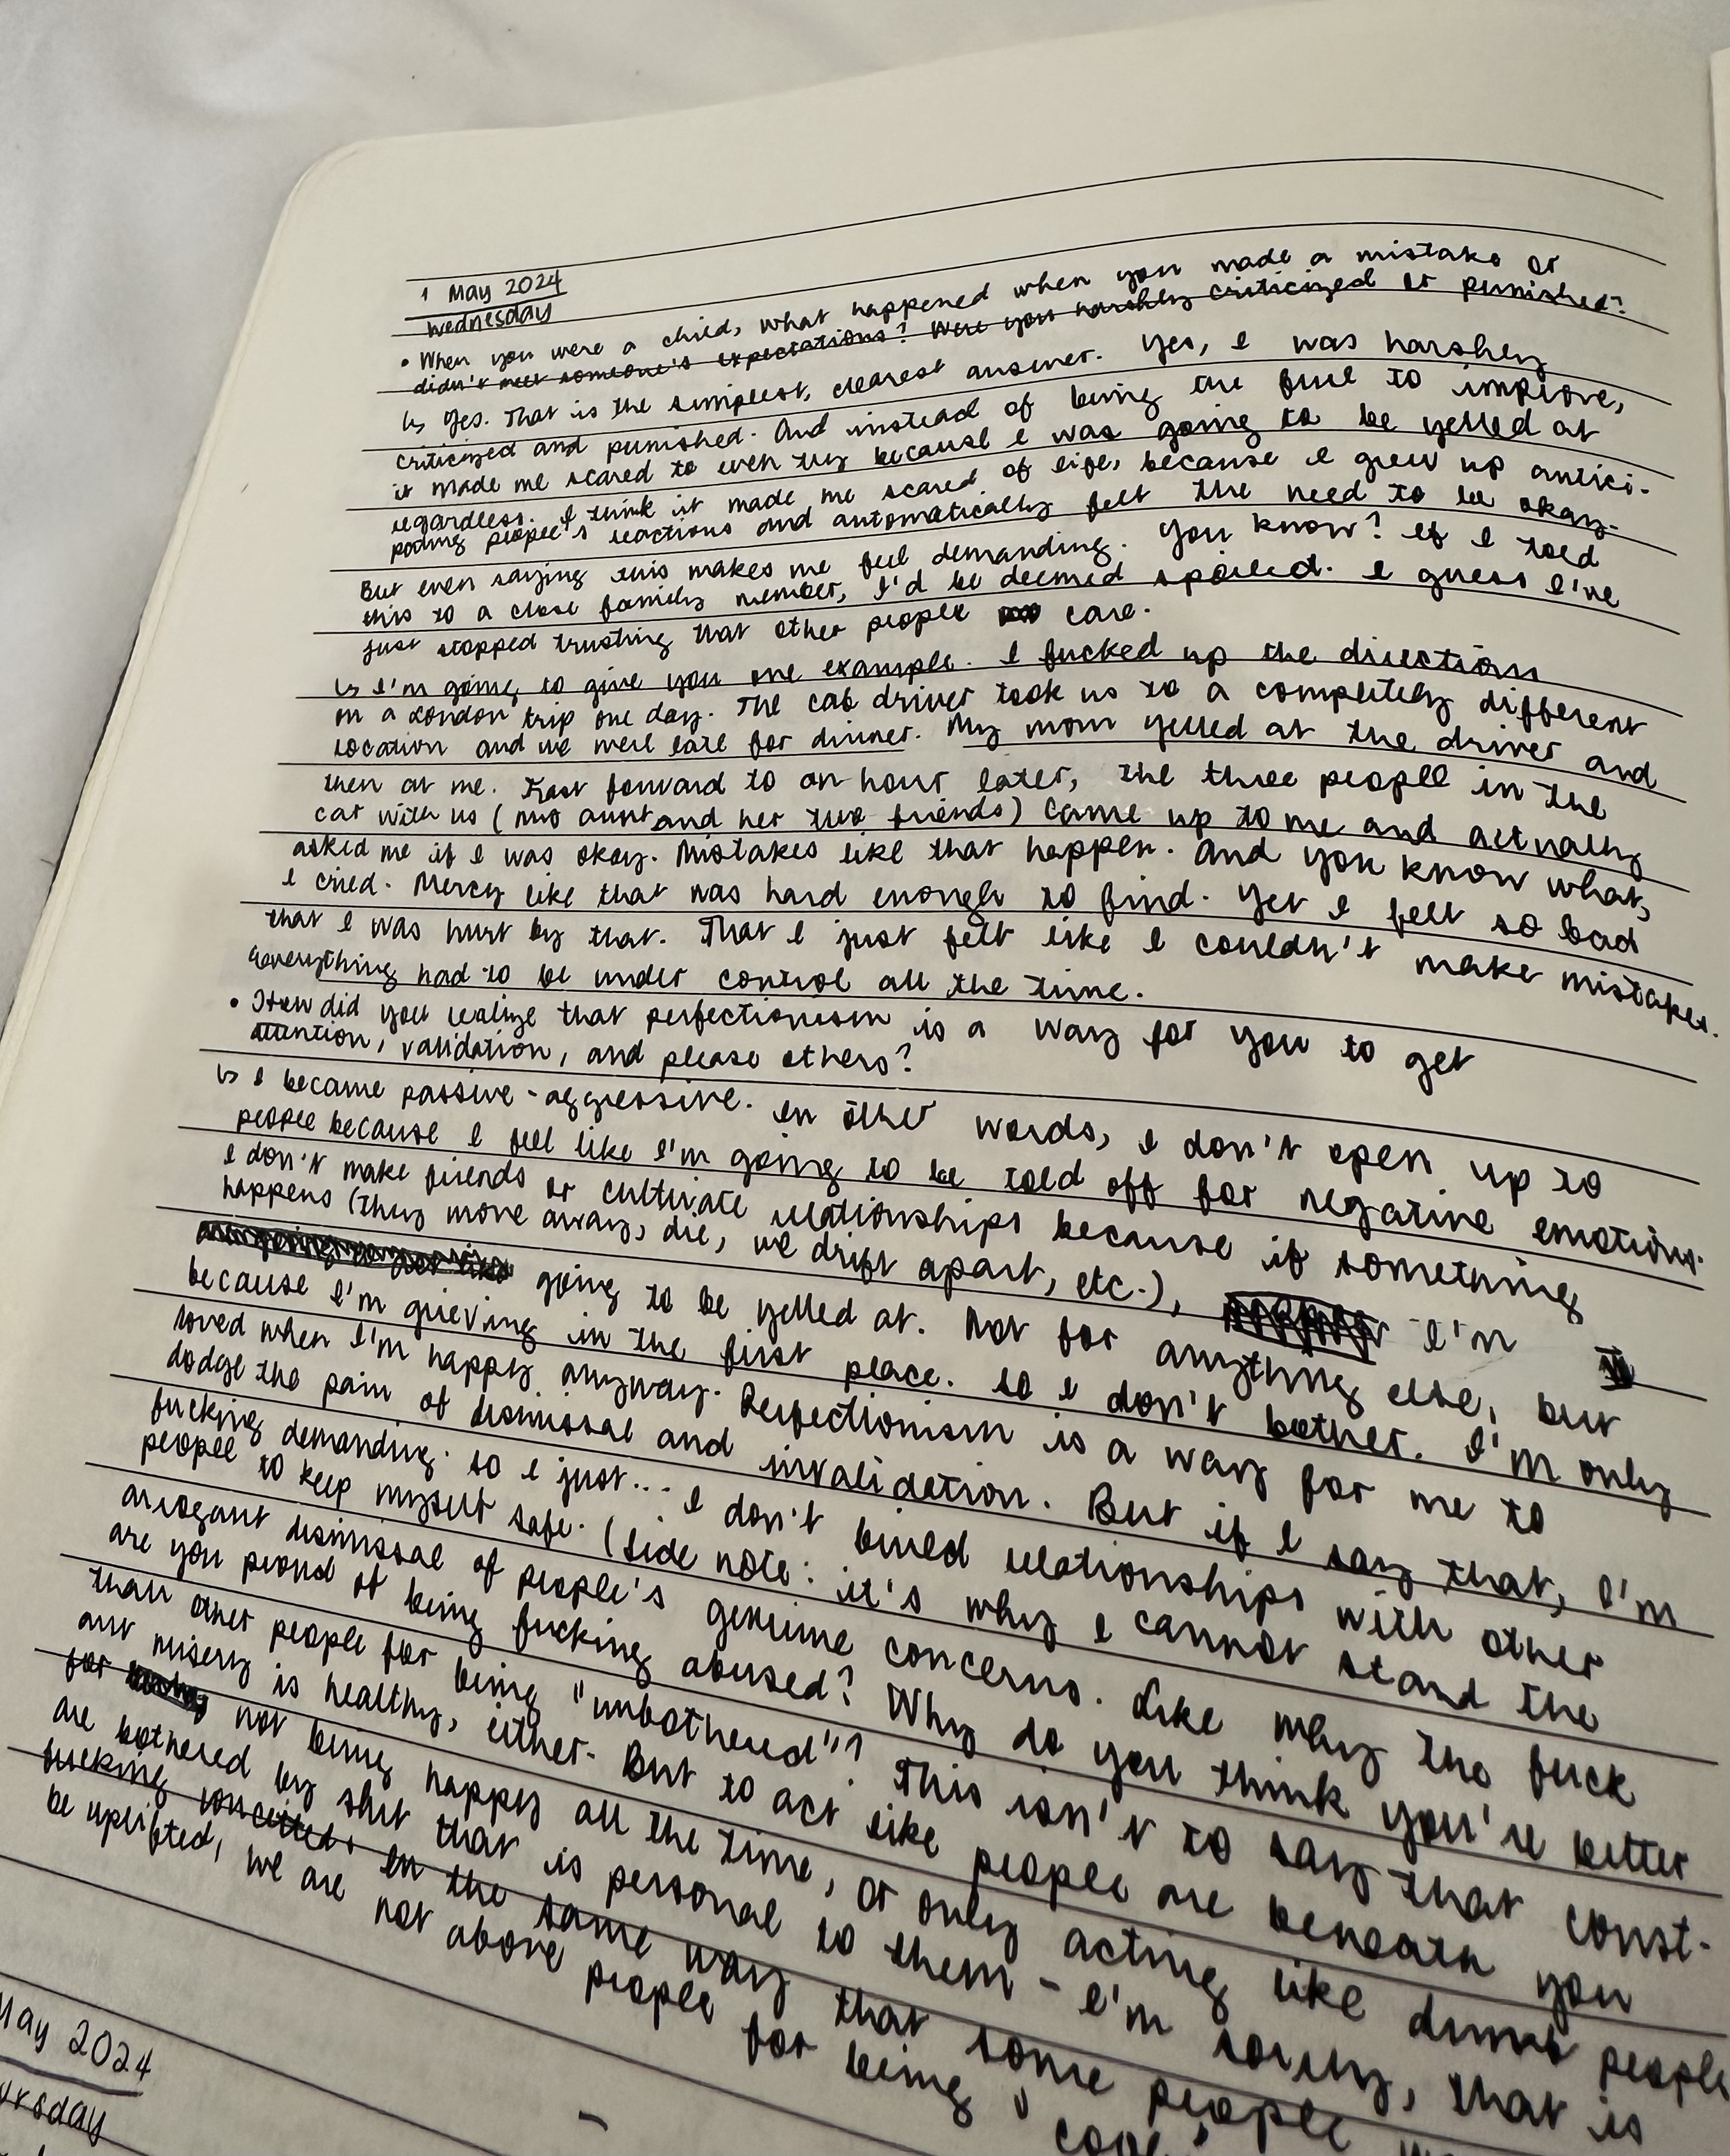 1 May 2024
Wednesday
• When you were a child, what happened when you made a mistake or
didn't meet someone's expectations? Were you harshly criticized or punished?
↳ Yes. That is the simplest, clearest answer. Yes, I was harshly
criticized and punished. And instead of being the fuel to improve,
it made me scared to even try because I was going to be yelled at
regardless. I think it made me scared of life, because I grew up antici-
pating people's reactions and automatically felt the need to be okay.
But even saying this makes me feel demanding. You know? If I told
this to a close family member, I'd be deemed spoiled. I guess I've
just stopped trusting that other people care.
↳ I'm going to give you one example. I fucked up the direction
on a London trip one day. The cab driver took us to a completely different
location and we were late for dinner. My mom yelled at the driver and
then at me. Fast forward to an hour later, the three people in the
car with us (my aunt and her two friends) came up to me and actually
asked me if I was okay. Mistakes like that happen. And you know what,
I cried. Mercy like that was hard enough to find. Yet I felt so bad
that I was hurt by that. That I just felt like I couldn't make mistakes.
Everything had to be under control all the time.
• How did you realize that perfectionism is a way for you to get
attention, validation, and please others?
↳ I became passive-aggressive. In other words, I don't open up to
people because I feel like I'm going to be told off for negative emotions.
I don't make friends or cultivate relationships because if something
happens (they move away, die, we drift apart, etc.), I'm
going to be yelled at. Not for anything else, but
because I'm grieving in the first place. So I don't bother. I'm only
loved when I'm happy anyway. Perfectionism is a way for me to
dodge the pain of dismissal and invalidation. But if I say that, I'm
fucking demanding. So I just... I don't build relationships with other
people to keep myself safe. (Side note: it's why I cannot stand the
arrogant dismissal of people's genuine concerns. Like why the fuck
are you proud of being fucking abused? Why do you think you're better
than other people for being "unbothered"? This isn't to say that const-
ant misery is healthy, either. But to act like people are beneath you
for not being happy all the time, or only acting like dumb people
are bothered by shit that is personal to them - I'm sorry, that is
fucking conceited. In the same way that some people
be uplifted, we are not above people for being "
May 2024